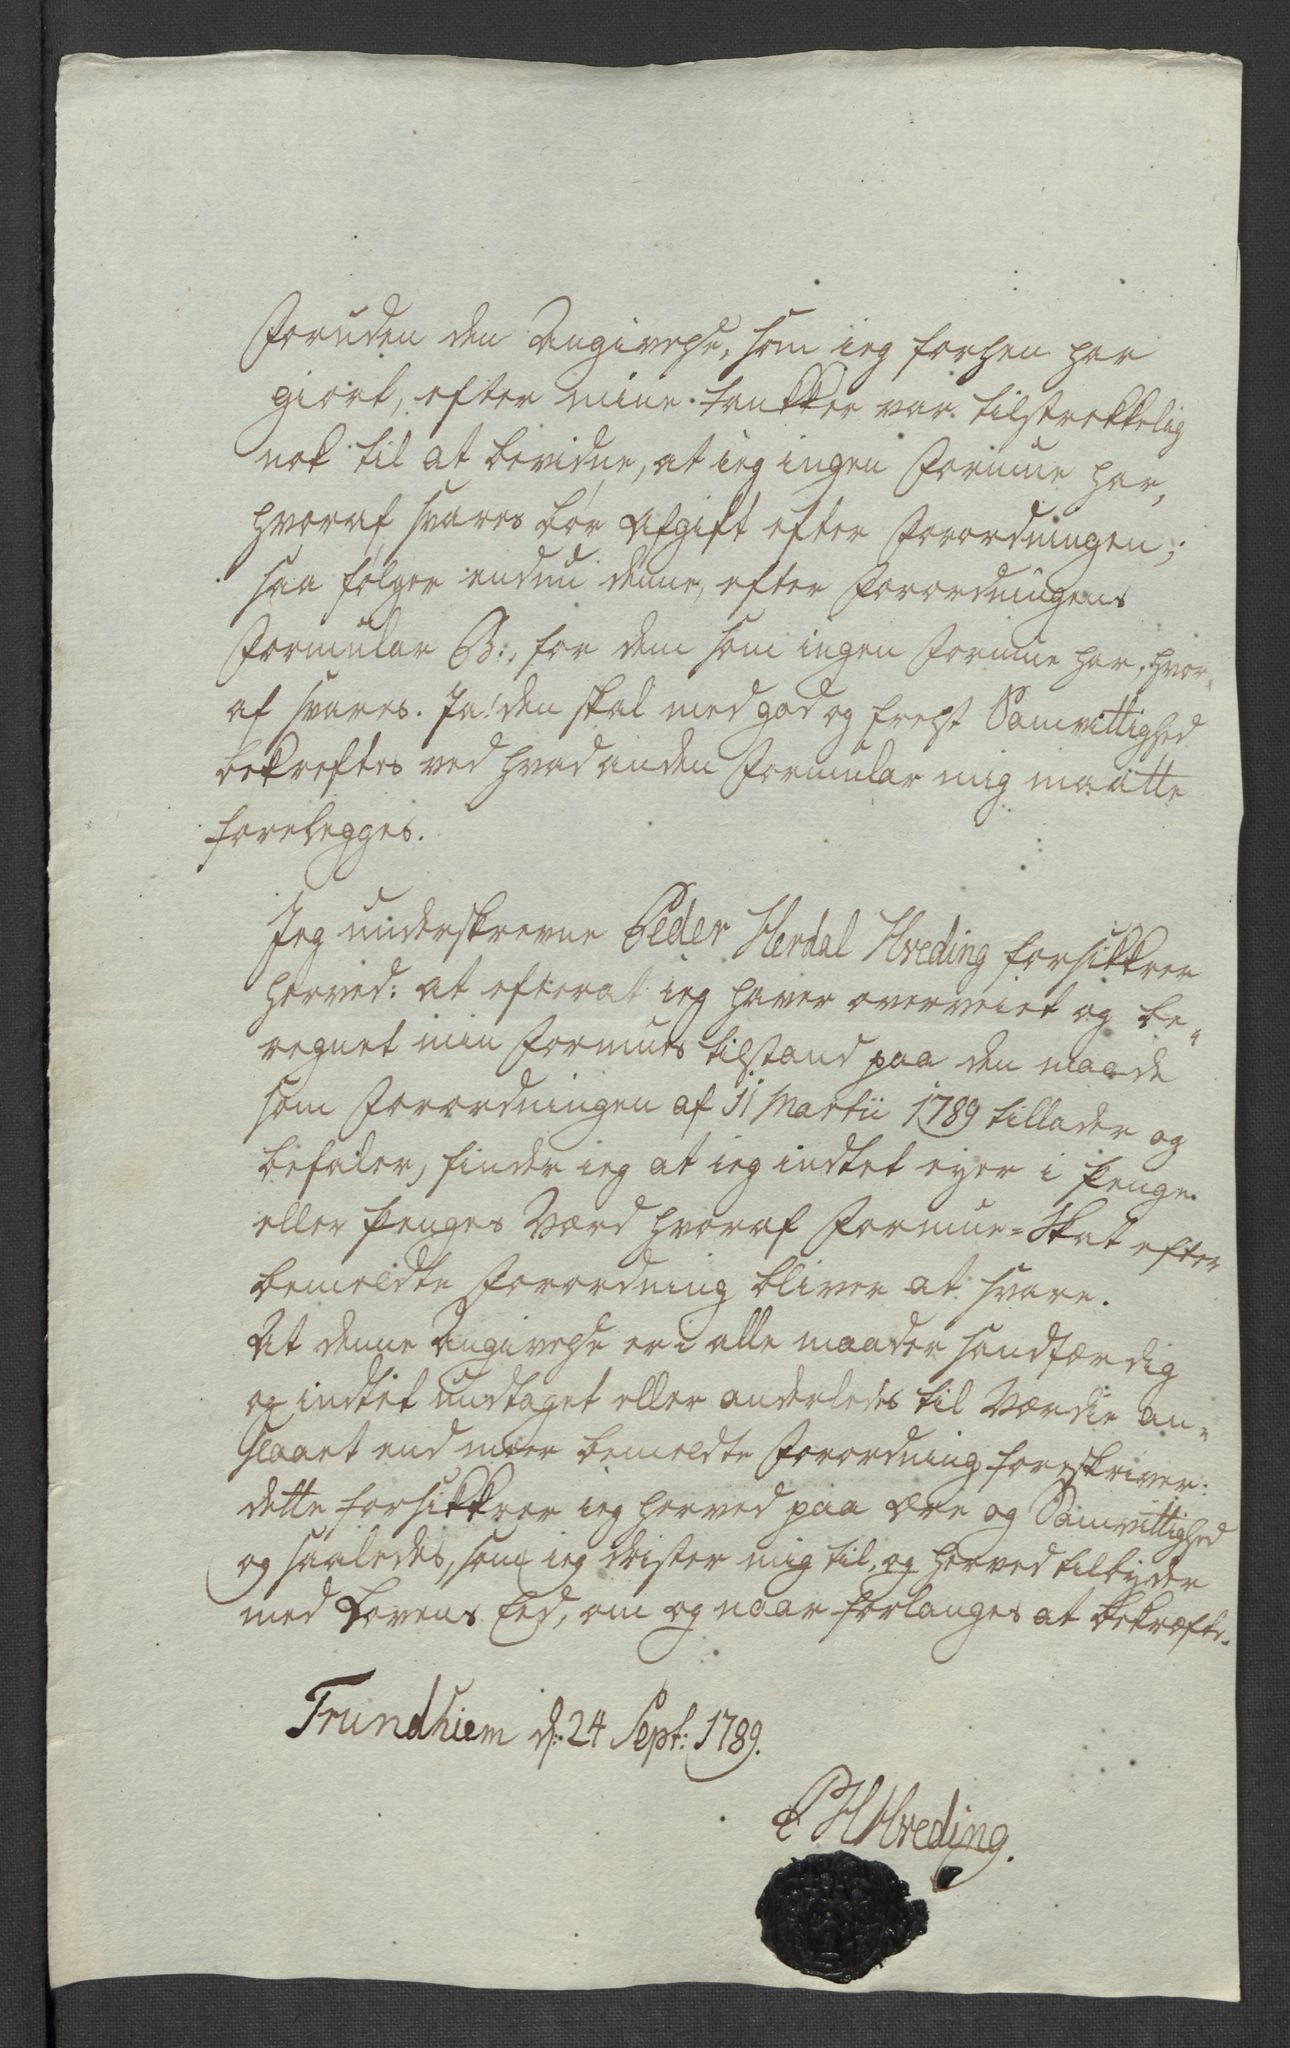 Foruden den Angivelse, som ieg forhen har
giort, efter mine Tankker var tilstrekkelig
nok til at bevidne, at ieg ingen Formue har,
hvoraf svares bør Afgift efter Forordningen;
saa følger endnu denne, efter Forordningens
Formular B:, for dem som ingen Formue har, hvor-
af svares. Ja! den skal med god og frelst Samvittighed
bekreftes ved hvad anden Formular mig maatte
forelegges.
Jeg underskrevne Peder Herdal Hveding forsikkrer
herved: at efterat ieg haver overveiet og be-
regnet min Formues tilstand paa den maade
som Forordningen af 11 Martii 1789 tillader og
befaler, finder ieg at ieg indtet eyer i Penge
eller Penges Værd hvoraf Formue-Skat efter
bemeldte Forordning bliver at svare.
At denne Angivelse er i alle maader sandfærdig
og indtet undtaget eller anderledes til Værdie an-
slaaet end meer bemeldte Forordning foreskriver:
dette forsikkrer ieg herved paa Ære og Samvittighed
og saaledes, som ieg drister mig til, og herved tilbyder
med Lovens Eed, om og naar forlanges at bekræfte.
Trundhiem d: 24 Sept: 1789.
P H Hveding.